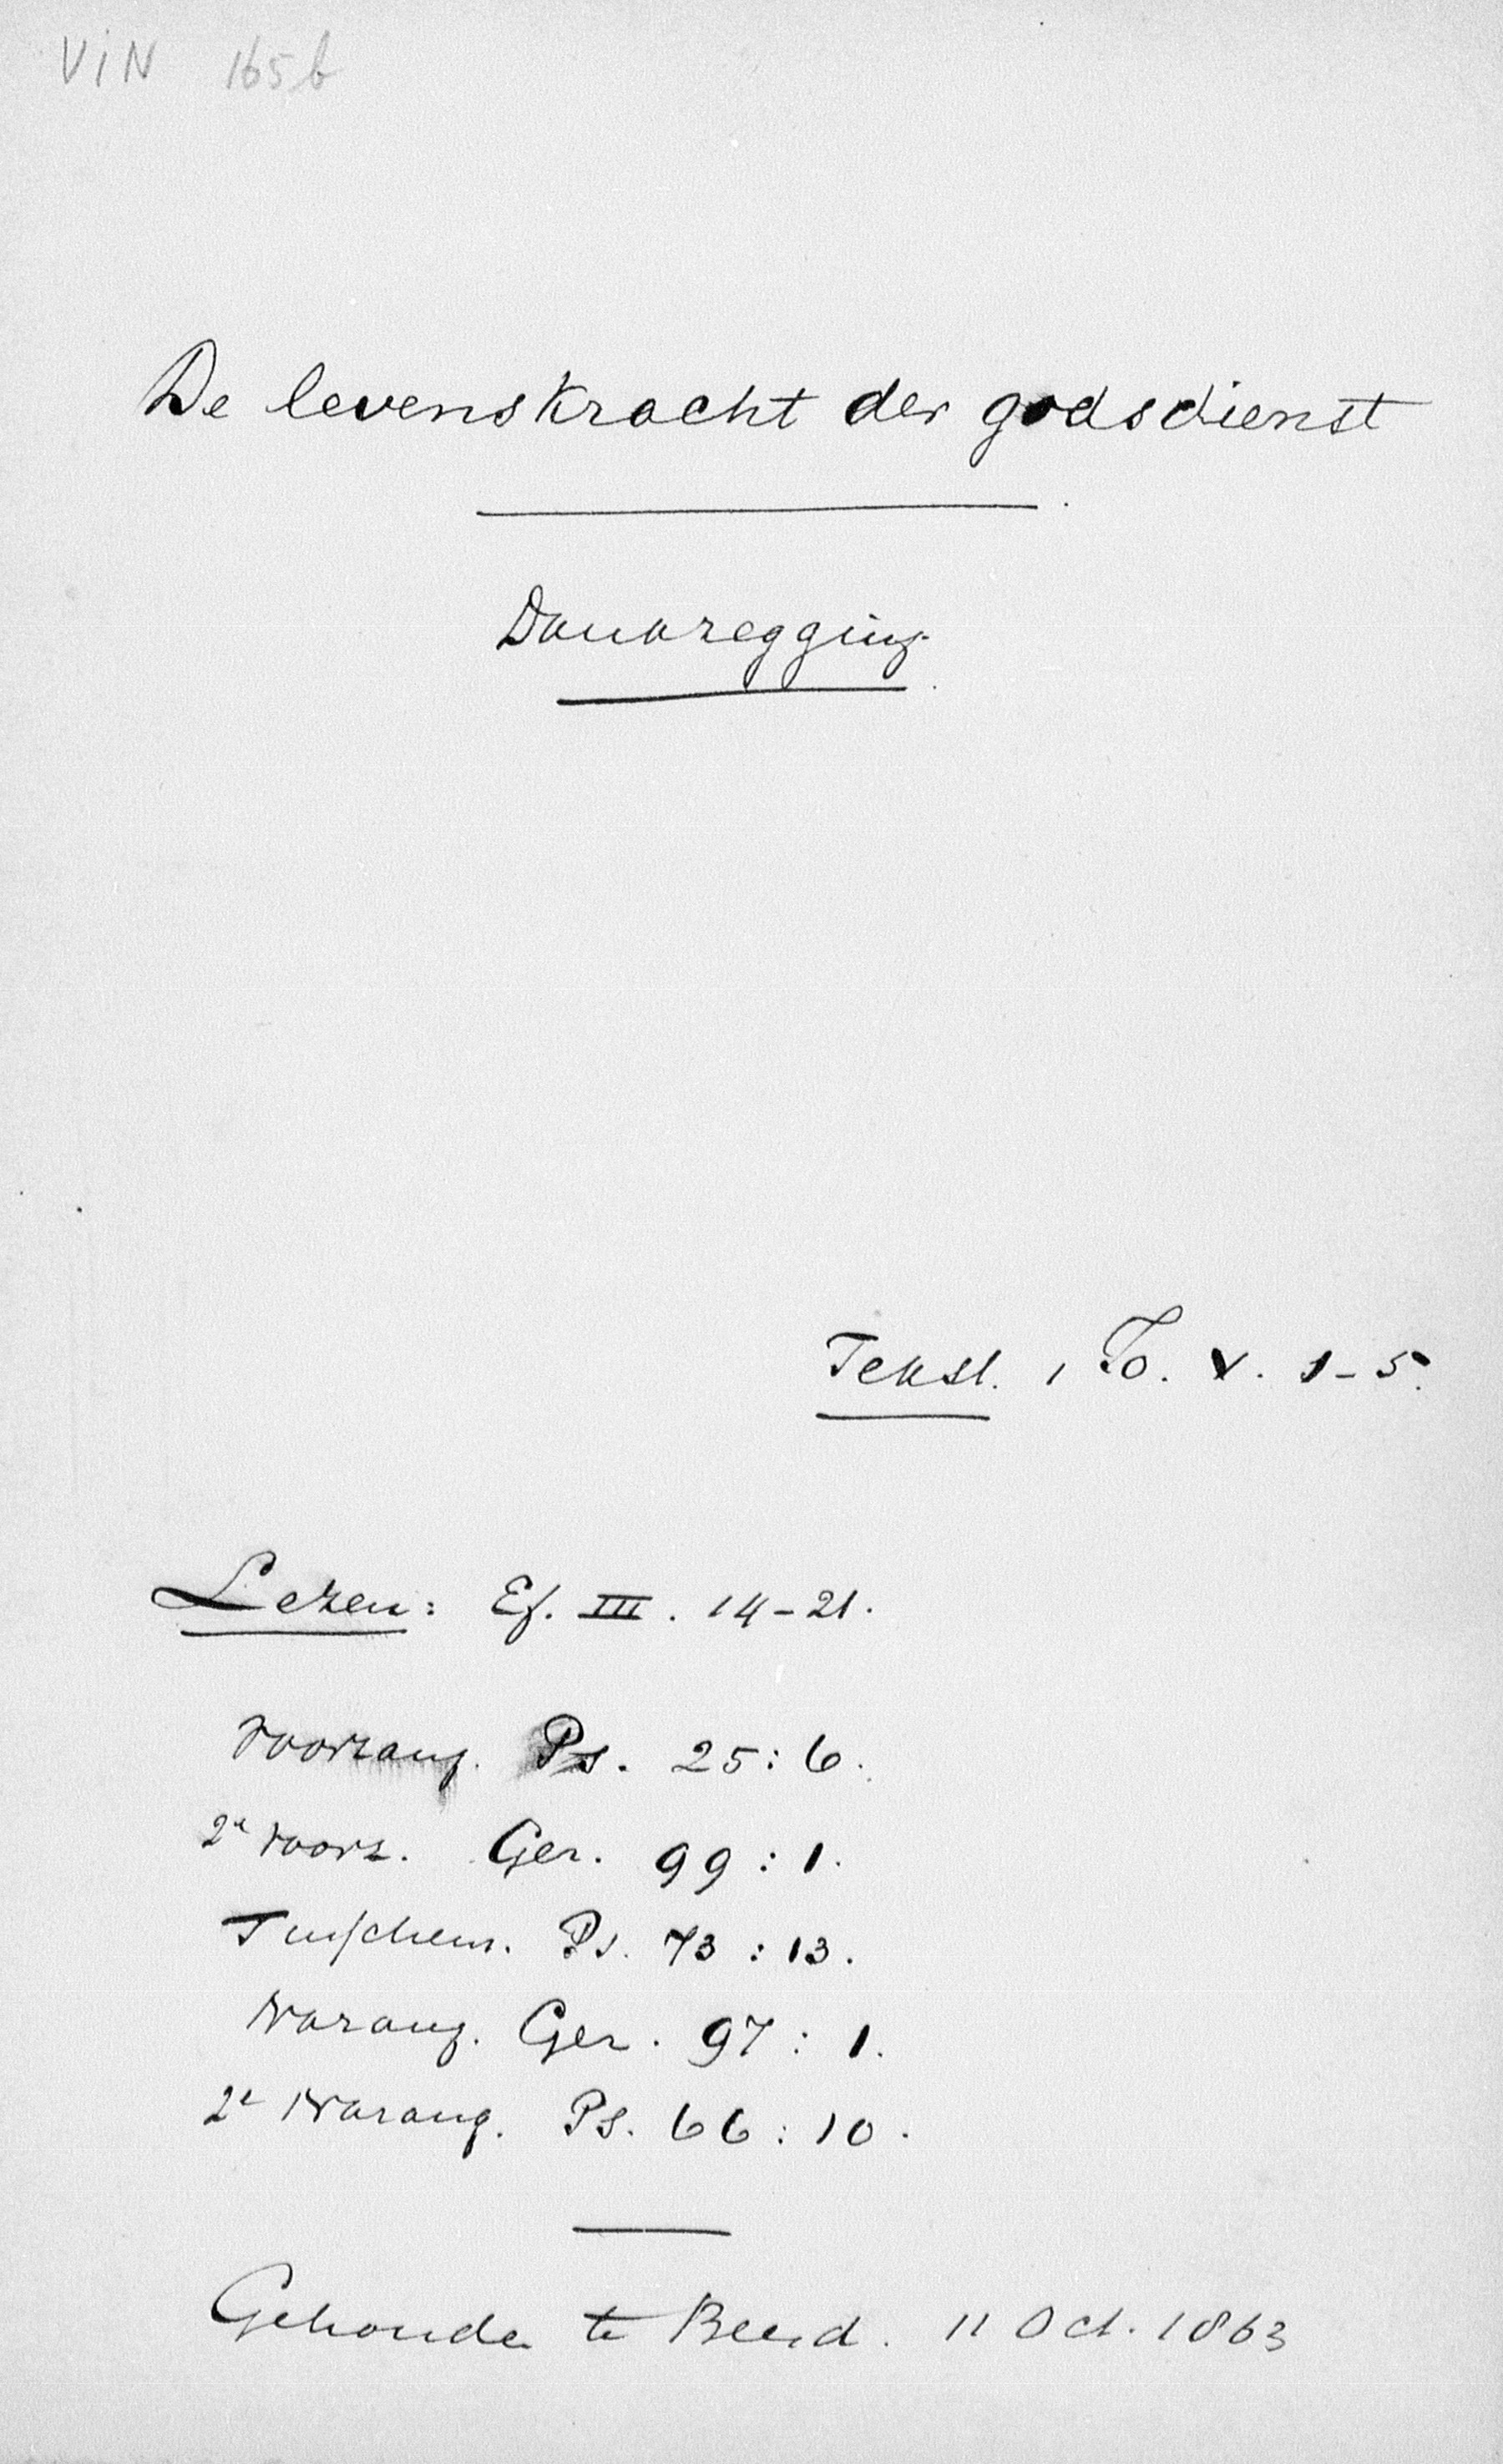 ViN 165b
De levenskracht der godsdienst
Dankzegging.
Tekst. 1 Jo. V. 1-5.
Lezen: Ef. III. 14-21.
Voorzang. Ps. 25:6.
2e voorz. Gez. 99:1.
Tusschenz. Ps. 73:13.
Nazang. Gez. 97:1.
2e Nazang. Ps. 66:10.
Gehouden te Beesd. 11 Oct. 1863